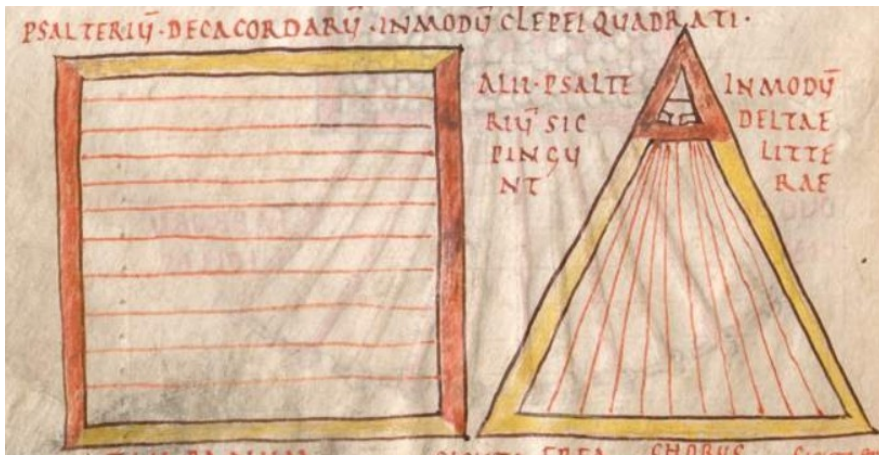 PSALTERIŪ · DECACORDARŪ · INMODŪ CLEPEI QUADRATI ·
ALII · PSALTE
RIŪ SIC
PINGU
NT
INMODŪ
DELTAE
LITTE
RAE
CHORUS